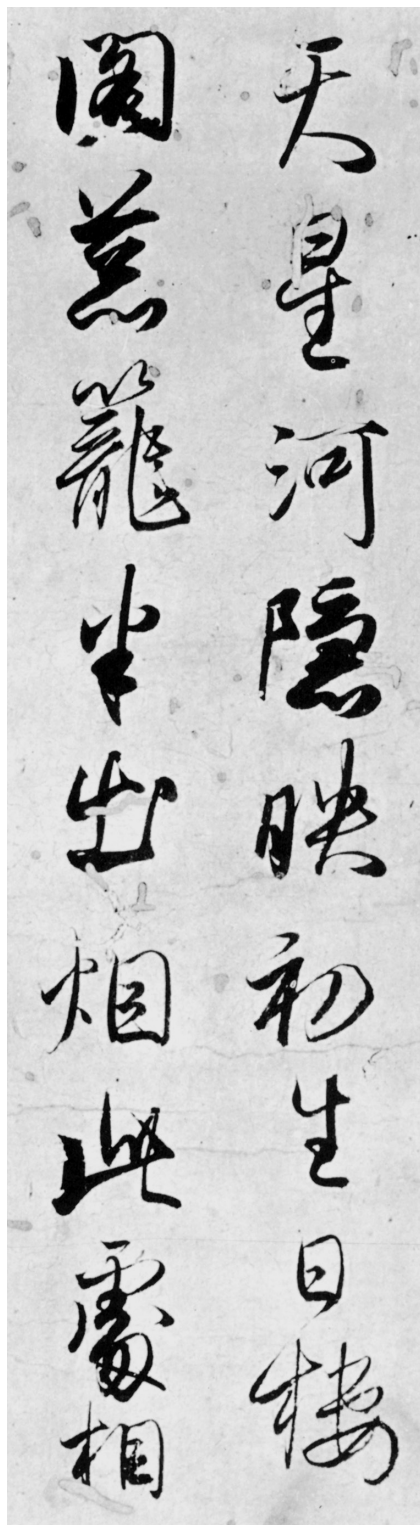 天星河隱映初生日樓
閣葱籠半出烟此處相